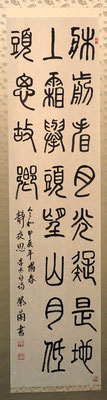 牀前看月光疑是地
上霜舉頭望山月低
頭思故鄉
令和甲辰年春
靜夜思 李太白詩 書